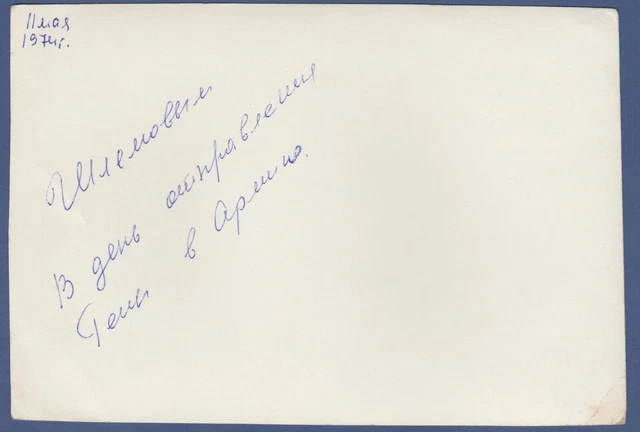 11 мая
1974г.
Шлемовым
В день отправления
Гены в Армию.